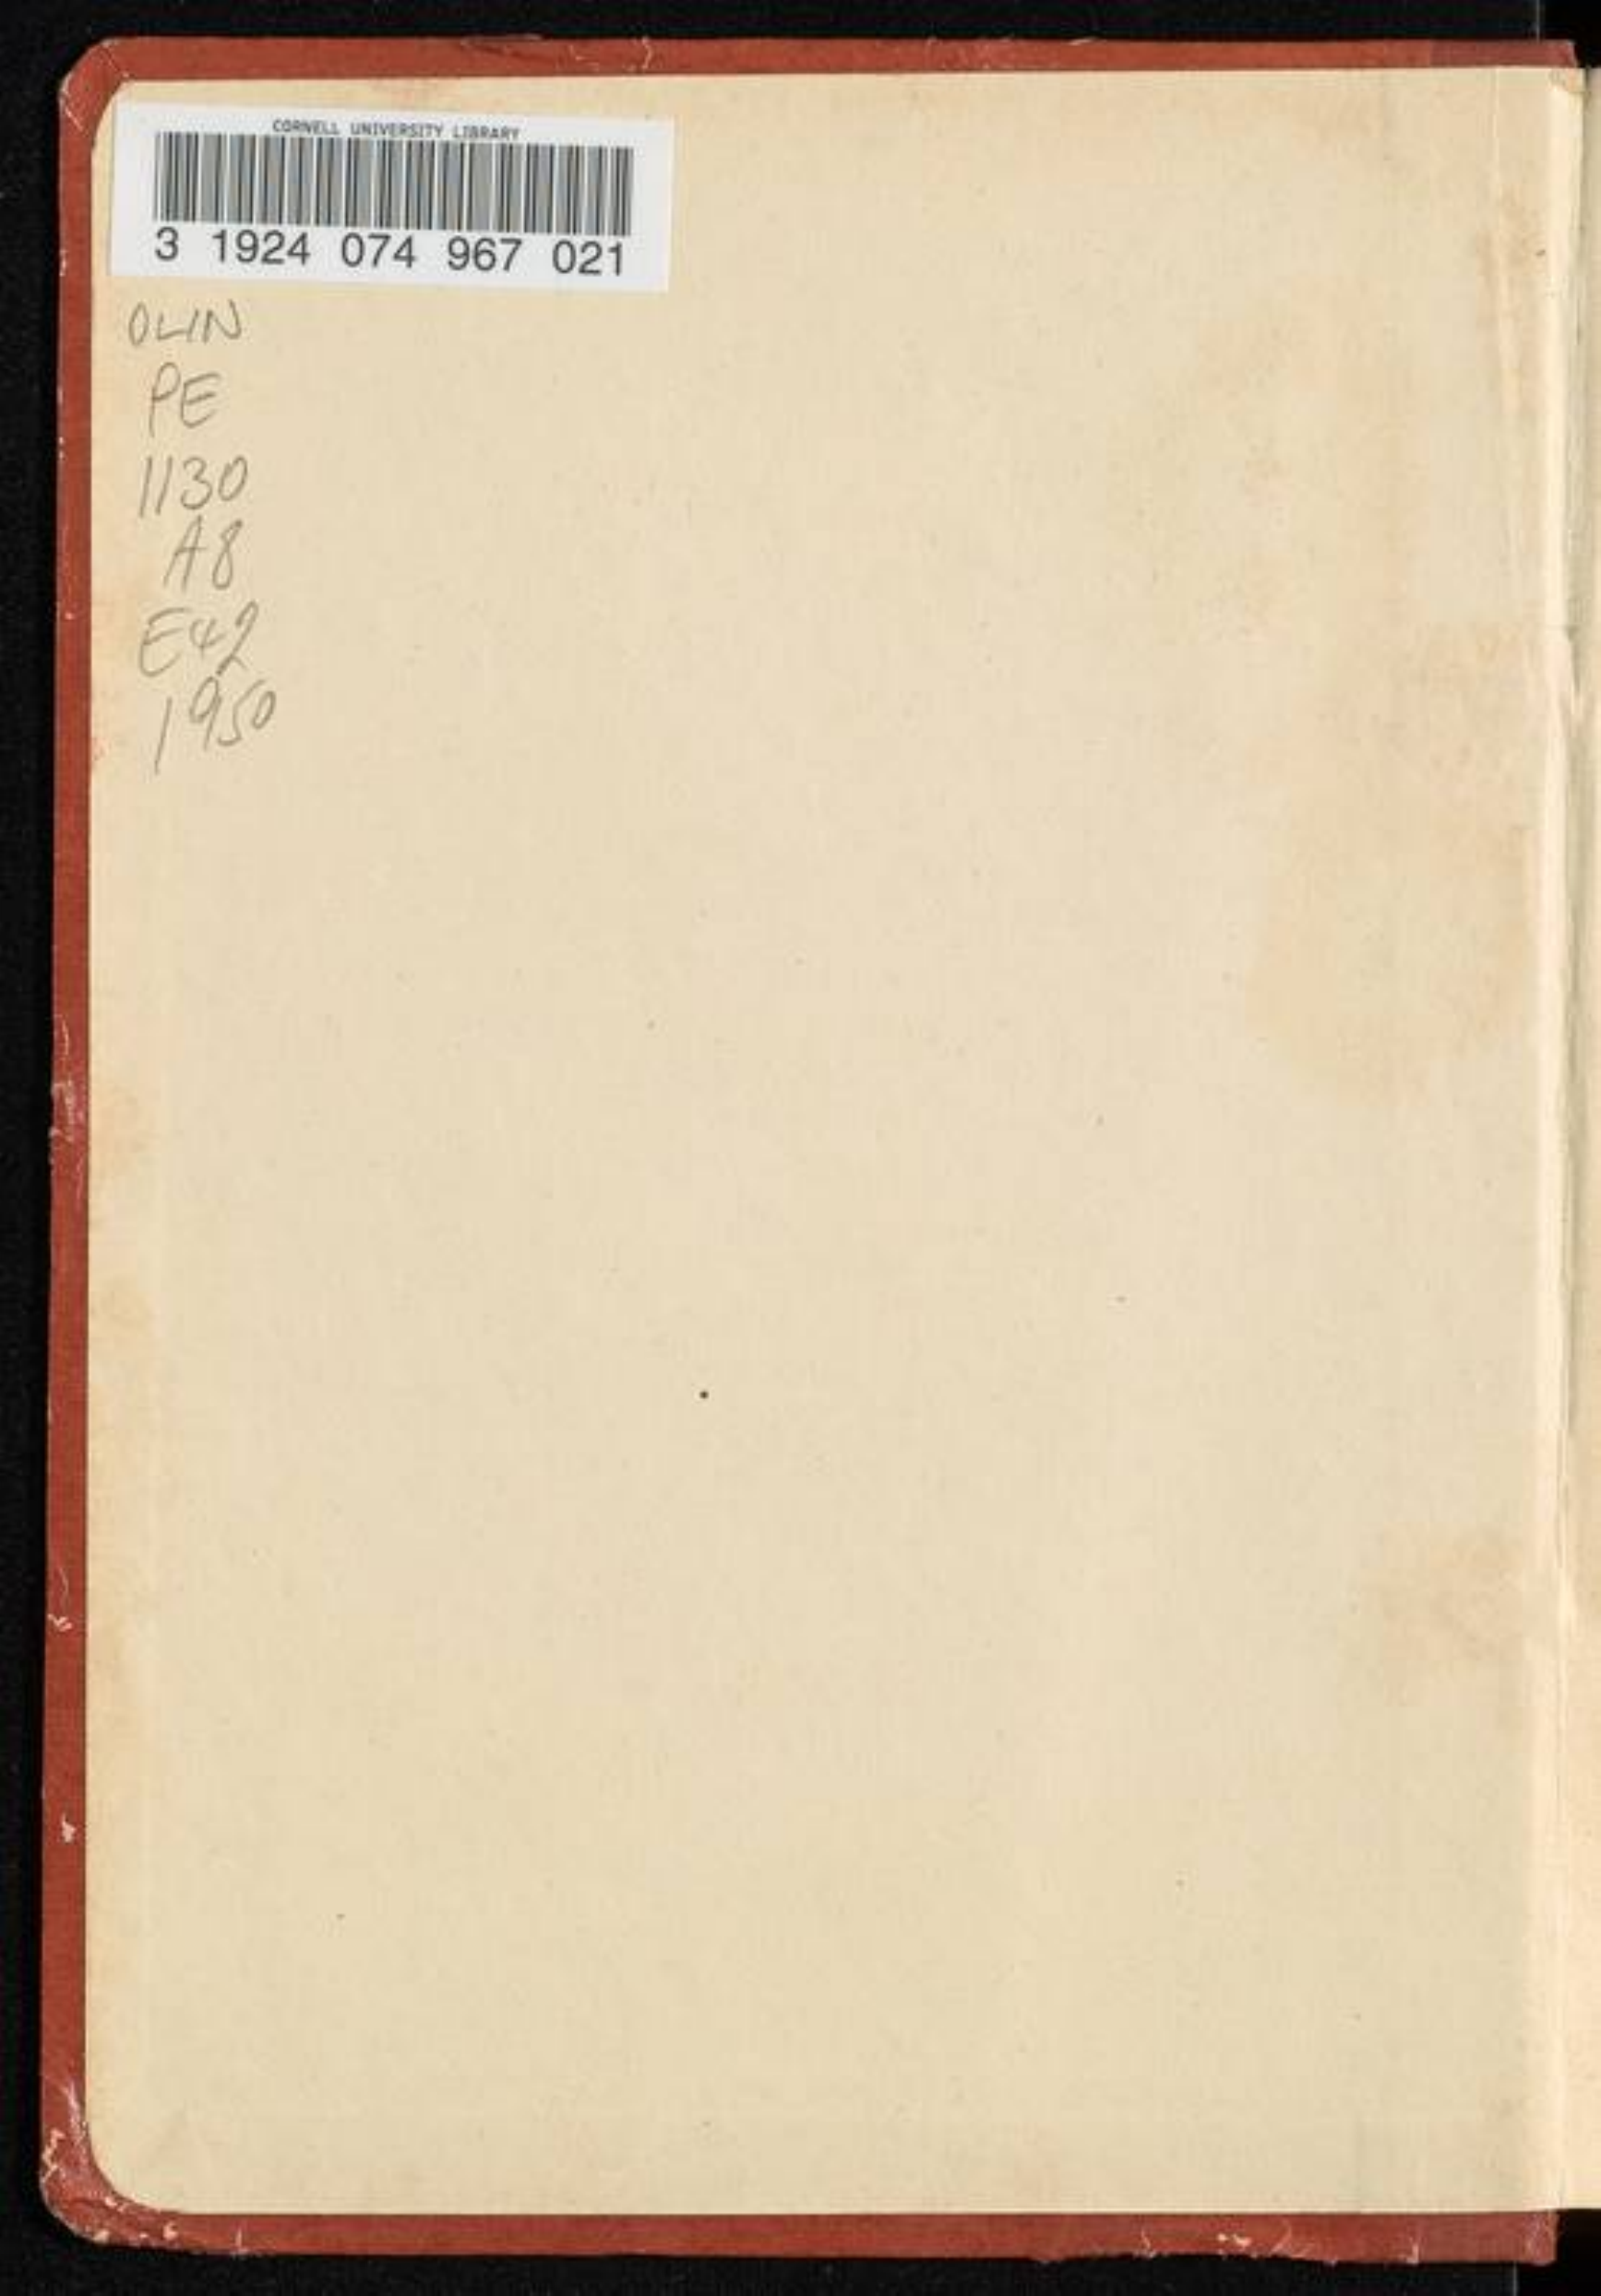 CORNELL UNIVERSITY LIBRARY
3 1924 074 967 021
OLIN
PE
1130
A8
E42
1950